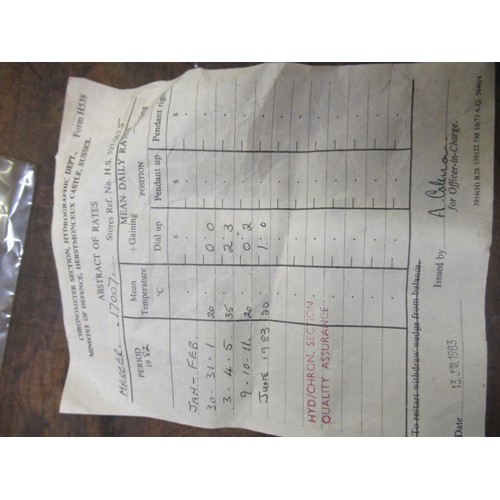 CHRONOMETER SECTION, HYDROGRAPHIC DEPT,
MINISTRY OF DEFENCE, HERSTMONCEUX CASTLE, SUSSEX.
Form H538
ABSTRACT OF RATES
MERCER 17007 Stores Ref. No. H.S.
PERIOD
1982
Mean
Temperature
°C
MEAN DAILY RATE
+ Gaining
POSITION
Dial up
Pendant up
Pendant right
s s s
JAN - FEB
30 . 31 . 1 20 0 . 0
3 . 4 . 5 35 2 . 3
9 . 10 . 11 20 0 . 2
JUNE 1983 20 1 . 0
HYD/CHRON. SECTION
QUALITY ASSURANCE
To restart withdraw wedge from balance.
Date 13 JUL 1983 Issued by
for Officer-in-Charge.